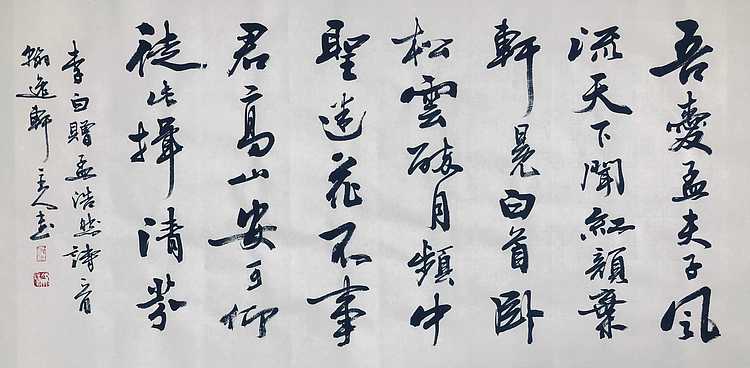 吾愛孟夫子風
流天下聞紅顏棄
軒冕白首卧
松雲醉月頻中
聖迷花不事
君高山安可仰
徒此揖清芬
李白贈孟浩然詩一首
翰逸軒主人書